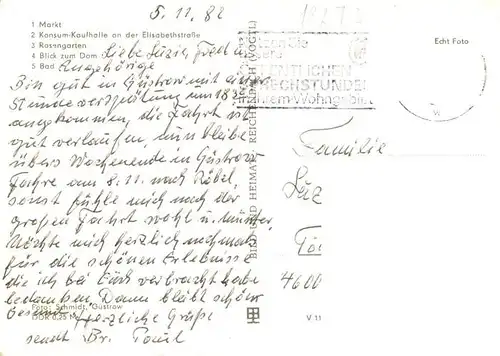 5.11.82
1 Markt
2 Konsum-Kaufhalle an der Elisabethstraße
3 Rosengarten
4 Blick zum Dom
5 Bad
Echt Foto
Liebe
Angehörige
Bin gut in Güstrow mit einer
Stunde verspätung um 18
angekommen, die Fahrt ist
gut verlaufen, nun bleibe
übers Wochenende in Güstrow
Fahre am 8.11. nach Röbel
sonst fühle mich nach der
großen Fahrt wohl u. munter,
Möchte mich herzlich nochmals
für die schönen Erlebnisse
die ich bei Euch verbracht habe
bedanken. Dann bleibt schön
gesund Herzliche Grüße
sendt Br.
Foto: Schmidt, Güstrow
DDR 0,25 M
BILD UND HEIMAT REICHENBACH (VOGTL)
V 11
ÖFFENTLICHEN
SPRECHSTUNDEN
in Ihrem Wohngebiet
Familie
4600